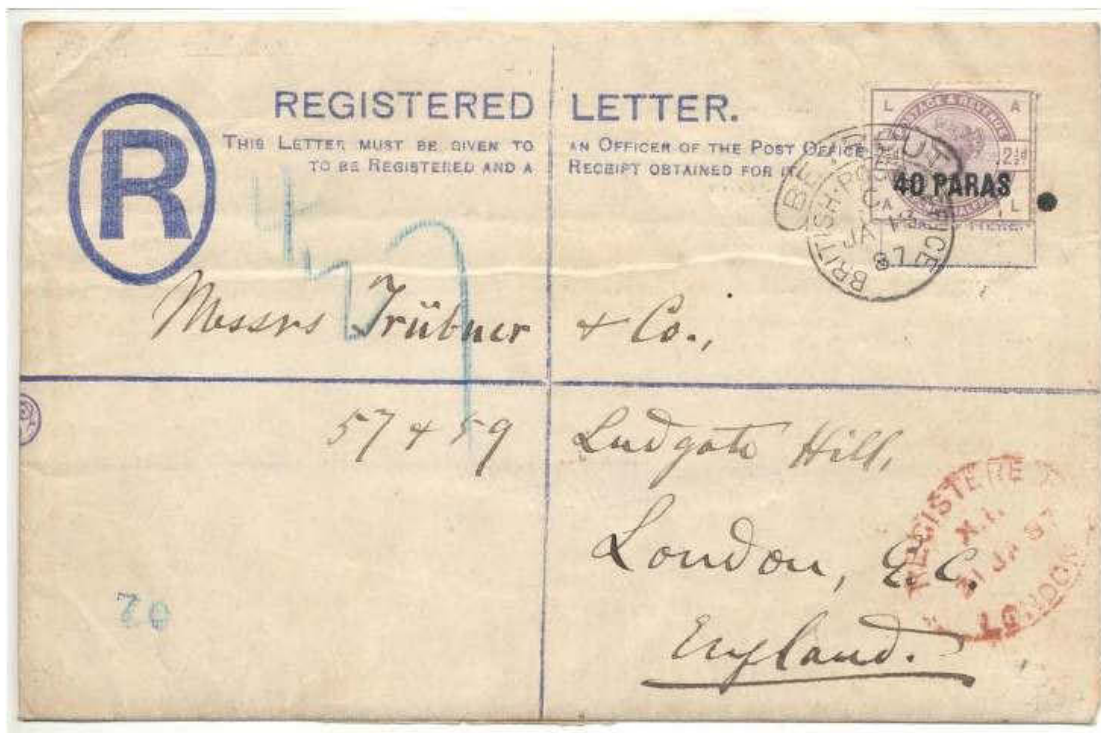 REGISTERED LETTER.
THIS LETTER MUST BE GIVEN TO AN OFFICER OF THE POST OFFICE
TO BE REGISTERED AND A RECEIPT OBTAINED FOR IT.
R
L A
POSTAGE & REVENUE
2½d
40 PARAS
A L
BEYROUT
BRITISH POST OFFICE
C
JA
87
Messrs Trübner & Co.,
57 & 59 Ludgate Hill,
London, E.C.
England.
REGISTERED
21 JA 87
LONDON